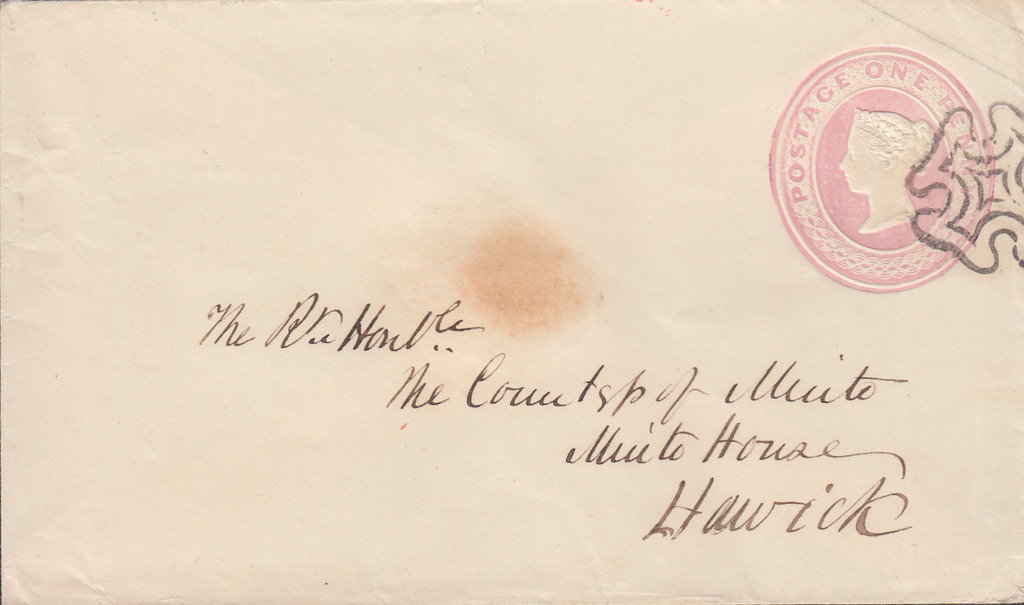 POSTAGE ONE PENNY
The Rt Honble
The Countess of Minto
Minto House
Hawick